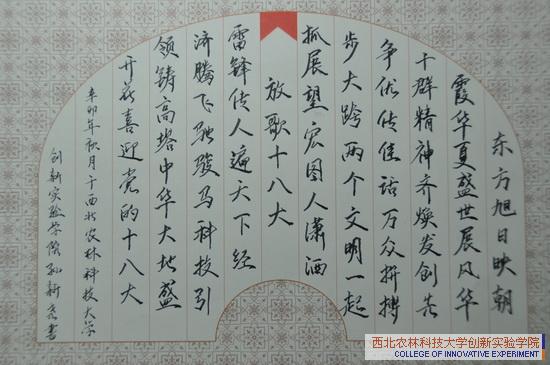 东方旭日映朝
霞华夏盛世展风华
干群精神齐焕发创先
争优传佳话万众拼搏
步大跨两个文明一起
抓展望宏图人潇洒
放歌十八大
雷锋传人遍天下经
济腾飞驰骏马科技引
领铸高塔中华大地盛
开花喜迎党的十八大
辛卯年秋月于西北农林科技大学
创新实验学院孙新尧书
西北农林科技大学创新实验学院
COLLEGE OF INNOVATIVE EXPERIMENT